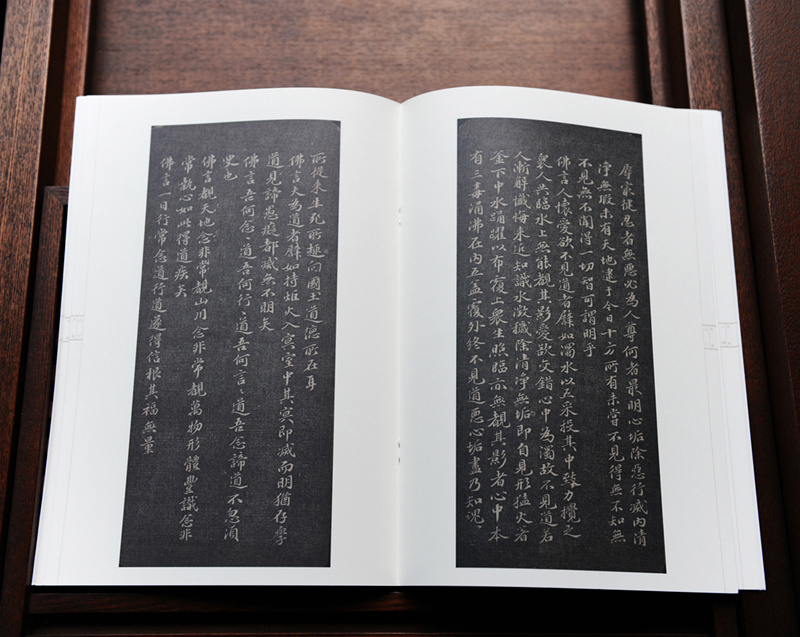 辱最健忍者無惡必為人尊何者最明心垢除惡行滅內清
淨無瑕未有天地逮于今日十方所有未嘗不見得無不知無
不見無不聞得一切智可謂明乎
佛言人懷愛欲不見道者譬如濁水以五采投其中致力攪之
衆人共臨水上無能覩其影愛欲交錯心中為濁故不見道若
人漸解懺悔來近知識水澂穢除清淨無垢即自見形猛火著
釜下中水踊躍以布覆上衆生照臨亦無覩其影者心中本
有三毒涌沸在內五蓋覆外終不見道惡心垢盡乃知魂
所從來生死所趣向國土道德所在耳
佛言夫為道者譬如持炬火入冥室中其冥即滅而明猶存學
道見諦愚癡都滅無不明矣
佛言吾何念々道吾何行々道吾何言々道吾念諦道不忽須
臾也
佛言覩天地念非常覩山川念非常覩萬物形體豐熾念非
常執心如此得道疾矣
佛言一日行常念道行道遂得信根其福無量